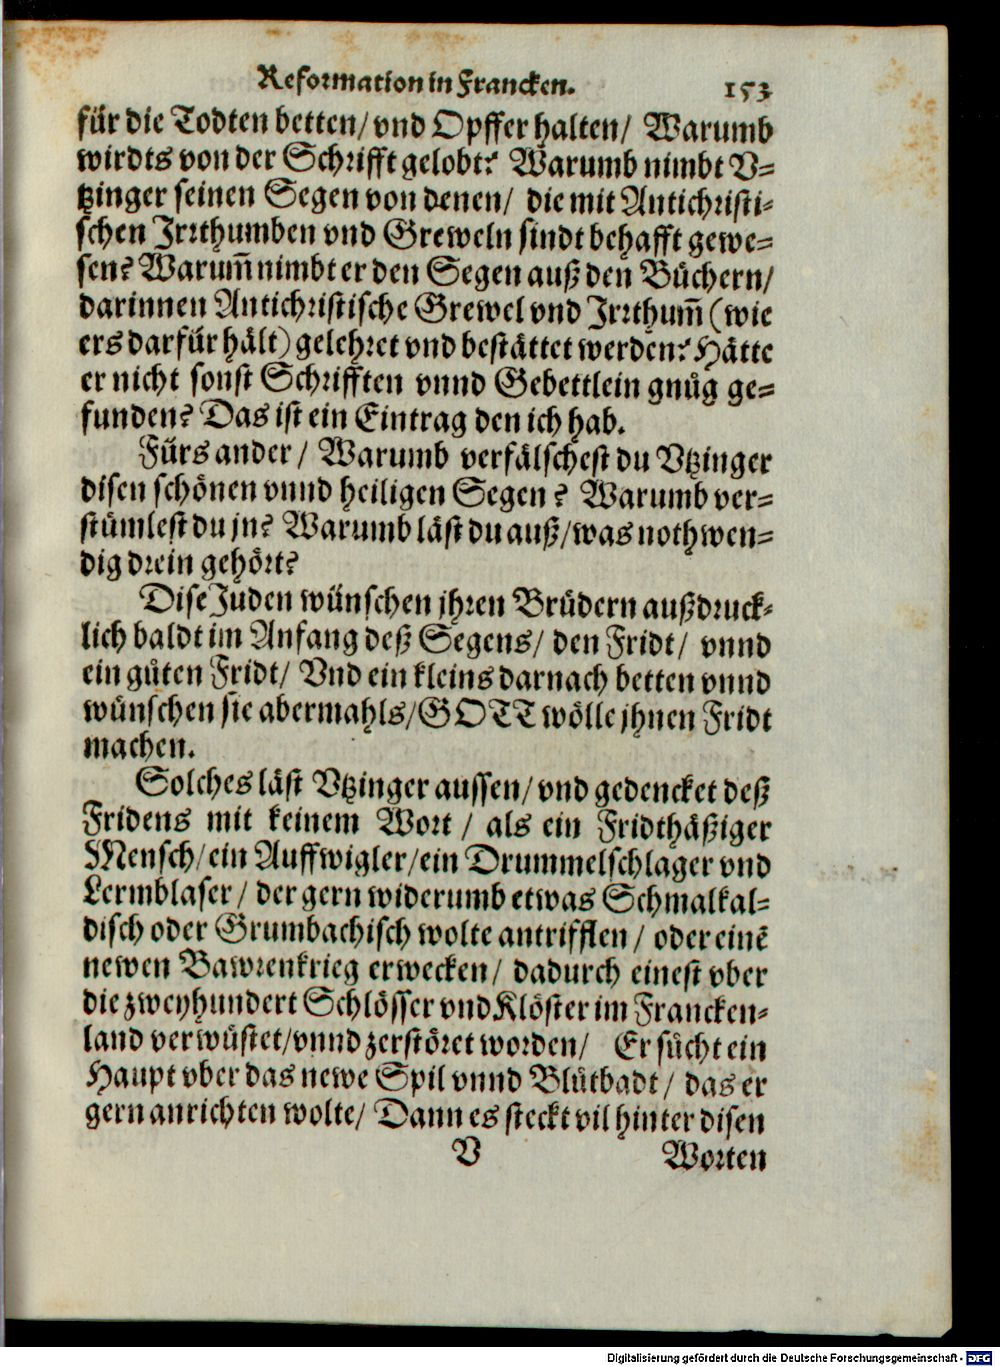 Reformation in Francken. 153
für die Todten betten/ vnd Opffer halten/ Warumb
wirdts von der Schrifft gelobt? Warumb nimbt V-
tzinger seinen Segen von denen/ die mit Antichristi-
schen Irrthumben vnd Greweln sindt behafft gewe-
sen? Warum̃ nimbt er den Segen auß den Büchern/
darinnen Antichristische Grewel vnd Irrthum̃ (wie
ers darfür hält) gelehret vnd bestättet werden? Hätte
er nicht sonst Schrifften vnnd Gebettlein gnůg ge-
funden? Das ist ein Eintrag den ich hab.
Fürs ander/ Warumb verfälschest du Vtzinger
disen schönen vnnd heiligen Segen? Warumb ver-
stümlest du jn? Warumb läst du auß/ was nothwen-
dig drein gehört?
Dise Juden wünschen jhren Brüdern außdruck-
lich baldt im Anfang deß Segens/ den Fridt/ vnnd
ein gůten Fridt/ Vnd ein kleins darnach betten vnnd
wünschen sie abermahls/ GOTT wölle jhnen Fridt
machen.
Solches läst Vtzinger aussen/ vnd gedencket deß
Fridens mit keinem Wort/ als ein Fridthäßiger
Mensch/ ein Auffwigler/ ein Drummelschlager vnd
Lermblaser/ der gern widerumb etwas Schmalkal-
disch oder Grumbachisch wolte antrifflen/ oder einẽ
newen Bawrenkrieg erwecken/ dadurch einest vber
die zweyhundert Schlösser vnd Klöster im Francken-
land verwüstet/ vnnd zerstöret worden/ Er sůcht ein
Haupt vber das newe Spil vnnd Blůtbadt/ das er
gern anrichten wolte/ Dann es steckt vil hinter disen
V Worten
Digitalisierung gefördert durch die Deutsche Forschungsgemeinschaft - DFG